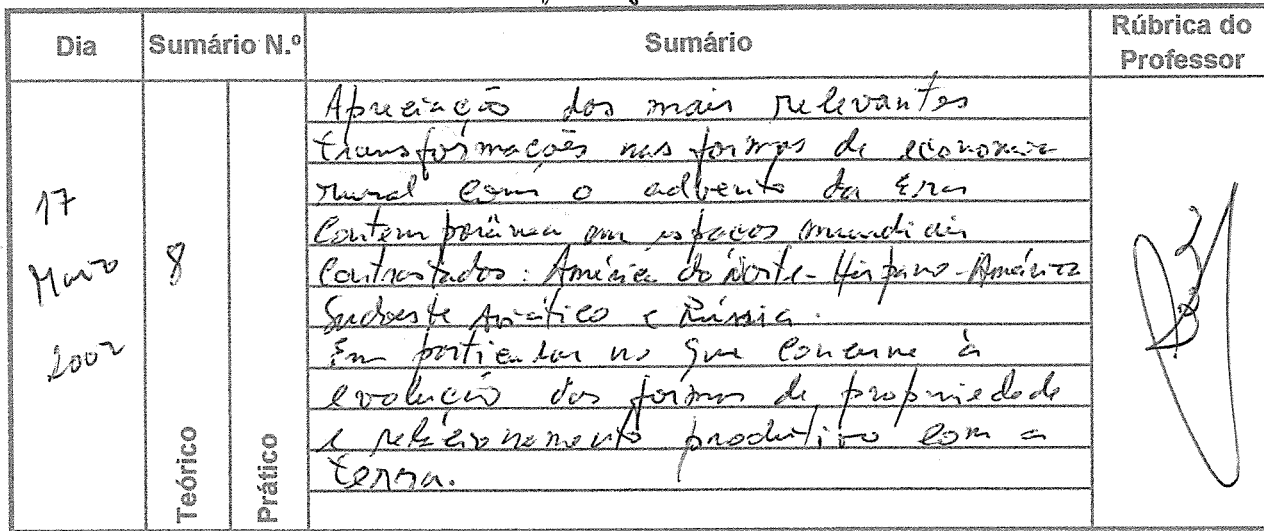 Dia
Sumário N.º
Sumário
Rúbrica do
Professor
17
2002
8
Teórico
Prático
Apreciação das mais relevantes
transformações nas formas de economia
rural com o advento da Era
Contemporânea em espaços mundiais
contrastados: América do Norte - Hispano-América
Sudoeste Asiático e Rússia.
Em particular no que concerne à
evolução das formas de propriedade
e relacionamento produtivo com a
terra.